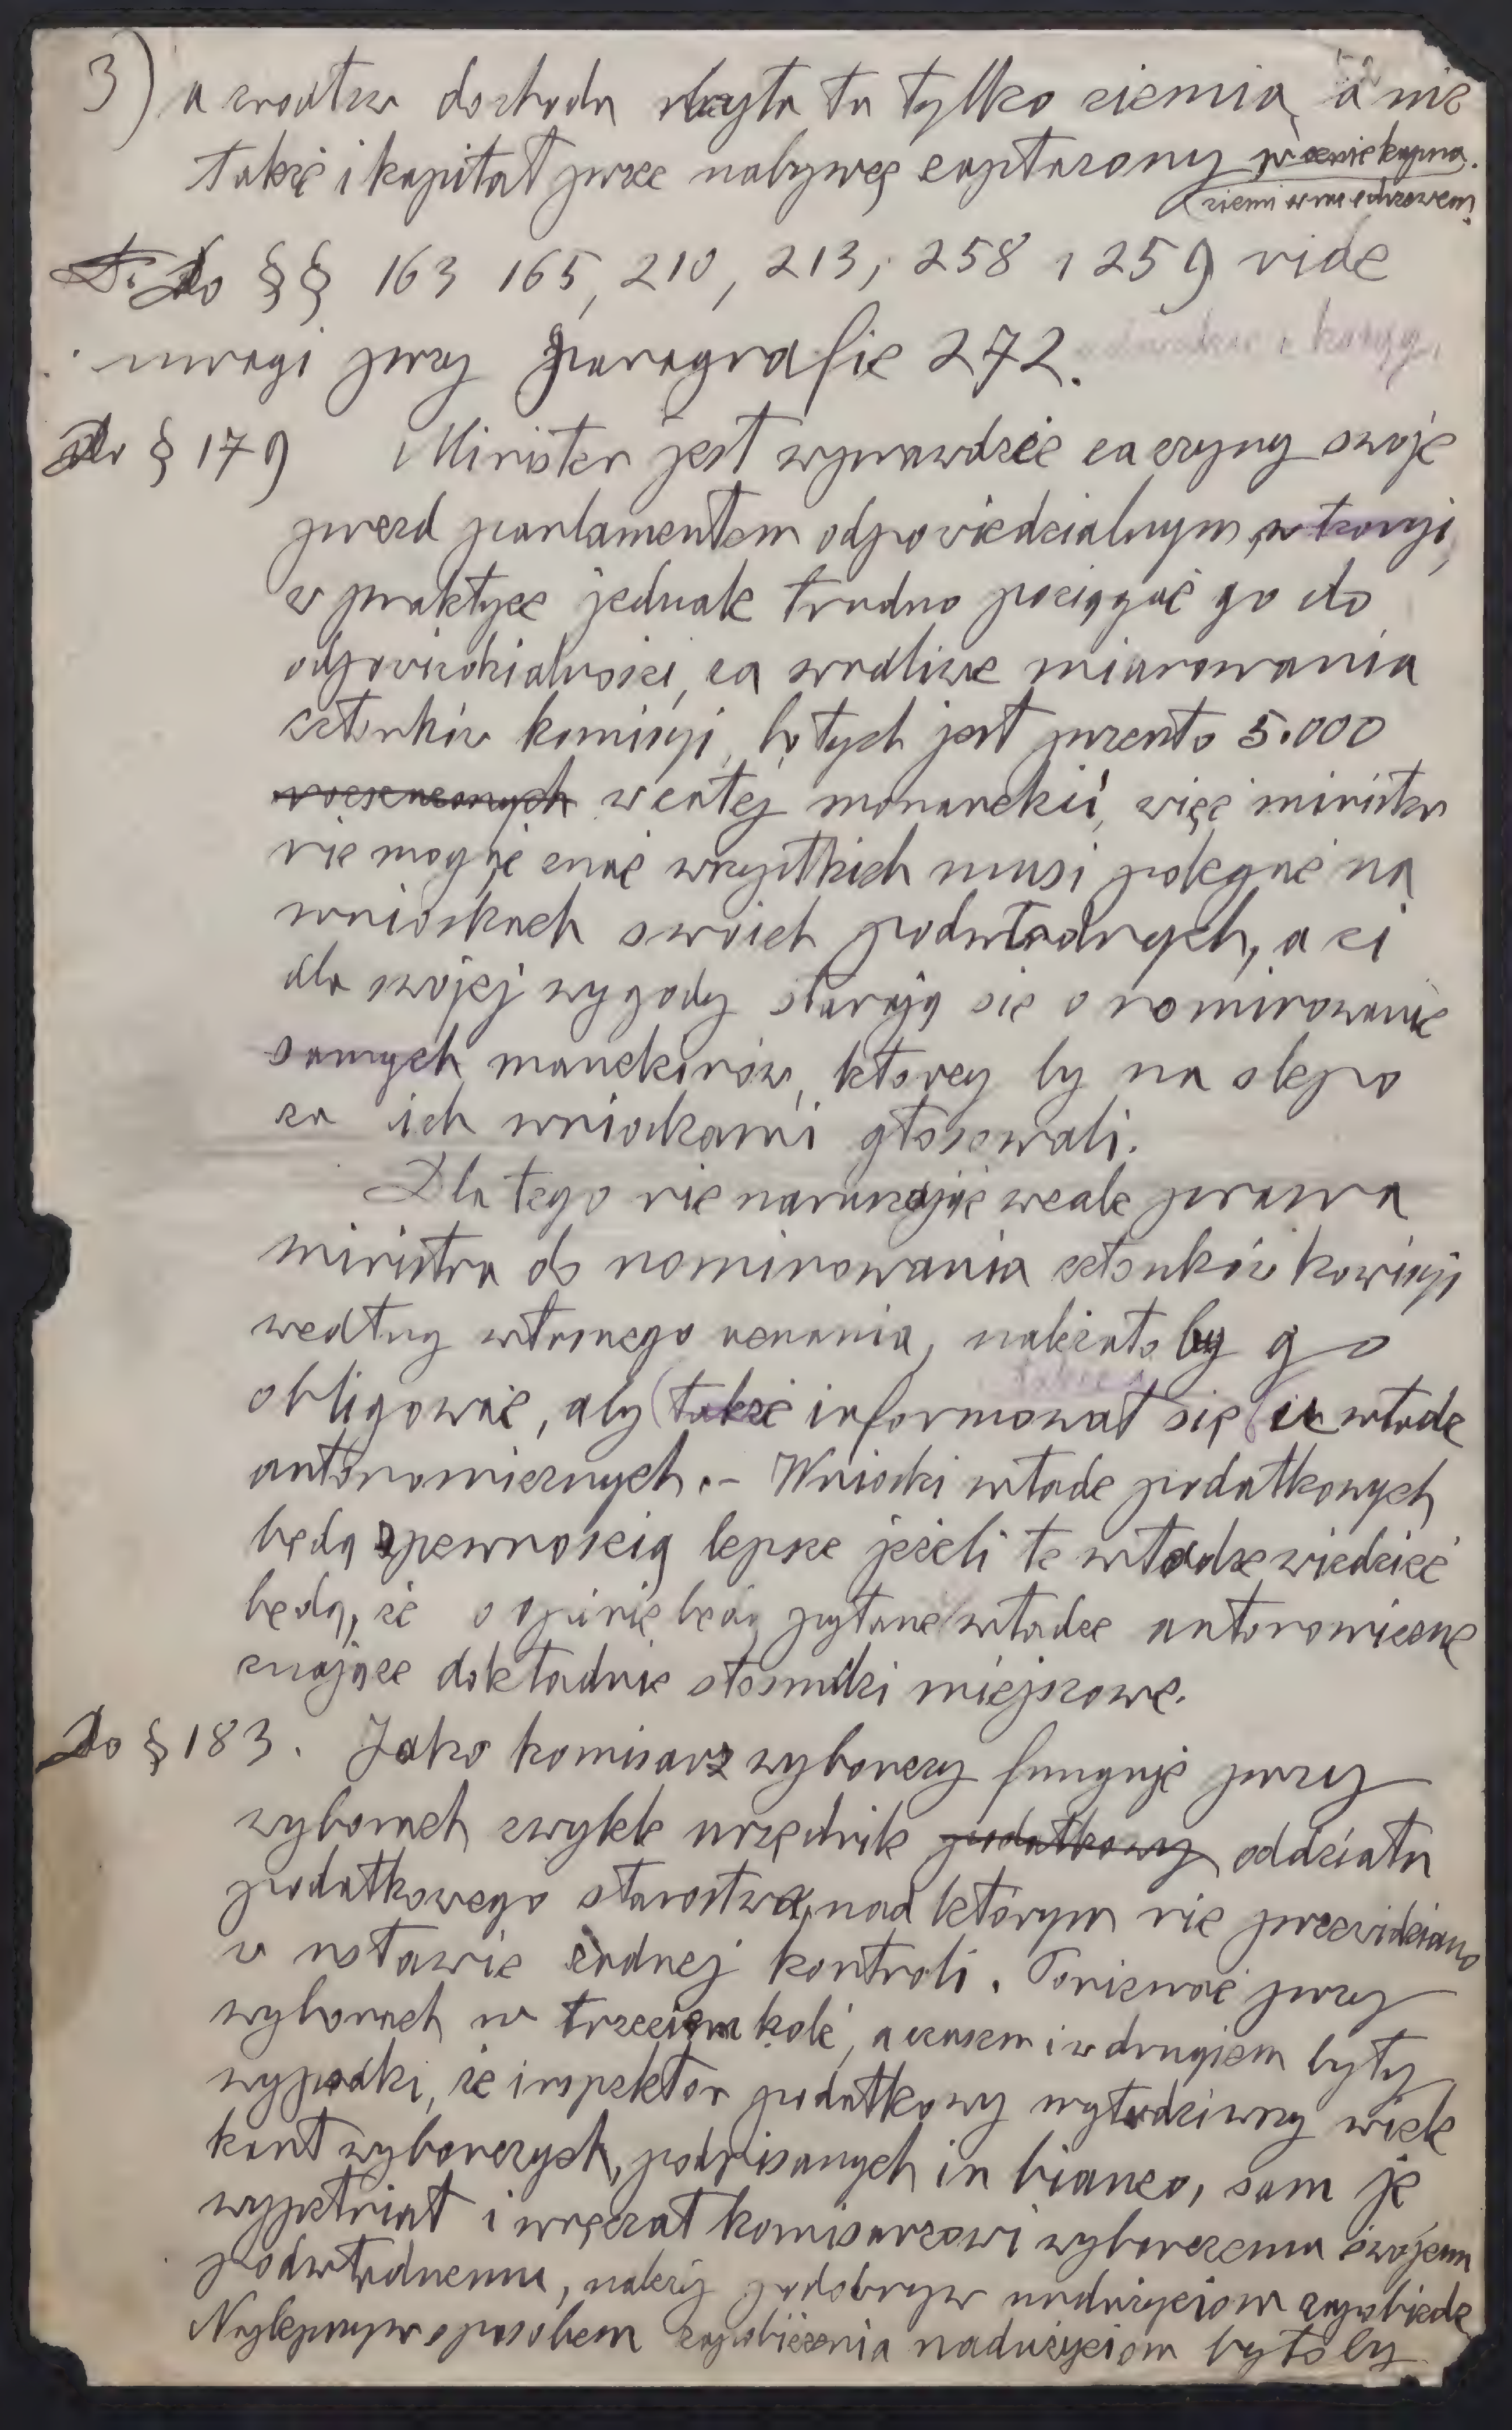 3) a źródłem dochodu byłaby tu tylko ziemia, a nie
także i kapitał przez nabywcę zapłacony w cenie kupna
ziemi
Do §§ 163 165, 210, 213, 258 i 259 vide
uwagi przy paragrafie 272.
Do § 179 Minister jest wprawdzie za czyny swoje
przed parlamentem odpowiedzialnym,
w praktyce jednak trudno pociągać go do
odpowiedzialności, za wadliwe mianowania
członków komisyi, bo tych jest przeszło 5.000
w całej monarchii, więc minister
nie mogąc znać wszystkich musi polegać na
wnioskach swoich podwładnych, a ci
dla swojej wygody starają się o nominowanie
samych manekinów, którzy by na ślepo
za ich wnioskami głosowali.
Dla tego nie naruszając wcale prawa
ministra do nominowania członków komisyi
według własnego uznania, należałoby go
obligować, aby także informował się u władz
autonomicznych. – Wnioski władz podatkowych
będą z pewnością lepsze jeżeli te władze wiedzieć
będą, że o opinię będą pytane władze autonomiczne
znające dokładnie stosunki miejscowe.
Do § 183. Jako komisarz wyborczy funguje przy
wyborach zwykle urzędnik podatkowy oddziału
podatkowego starostwa, nad którym nie przewidziano
w ustawie żadnej kontroli. Ponieważ przy
wyborach w trzeciem kole, a czasem i w drugiem były
wypadki, że inspektor podatkowy wyłudziwszy wiele
kart wyborczych, podpisanych in bianco, sam je
wypełniał i wręczał komisarzowi wyborczemu swojemu
podwładnemu, należy podobnym nadużyciom zapobiedz
Najlepszym sposobem zapobieżenia nadużyciom byłoby